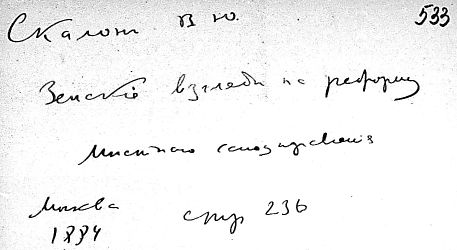 Скалон В Ю. 533
Земскіе взгляды на реформу
мѣстнаго самоуправленія
Москва
1884 стр 236